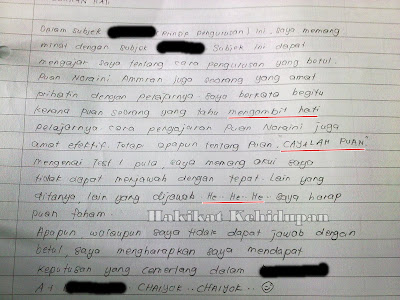 Dalam subjek (Prinsip Pengurusan) ini, saya memang
minat dengan subjek Subjek ini dapat
mengajar saya tentang cara pengurusan yang betul.
Puan Noraini Ammiran juga seorang yang amat
prihatin dengan pelajarnya. Saya berkata begitu
kerana puan seorang yang tahu mengambil hati
pelajarnya cara pengajaran Puan Noraini juga
amat efektif. Tetapi apapun tentang Puan, "CAYALAH PUAN"
mengenai Test 1 pula, saya memang akui saya
tidak dapat menjawab dengan tepat. Lain yang
ditanya, lain yang dijawab He.. He.. He.. Saya harap
puan faham.
Hakikat Kehidupan
Apapun, walaupun saya tidak dapat jawab dengan
betul, saya mengharapkan saya mendapat
keputusan yang cemerlang dalam
A+ CHAIYOK.. CHAIYOK..